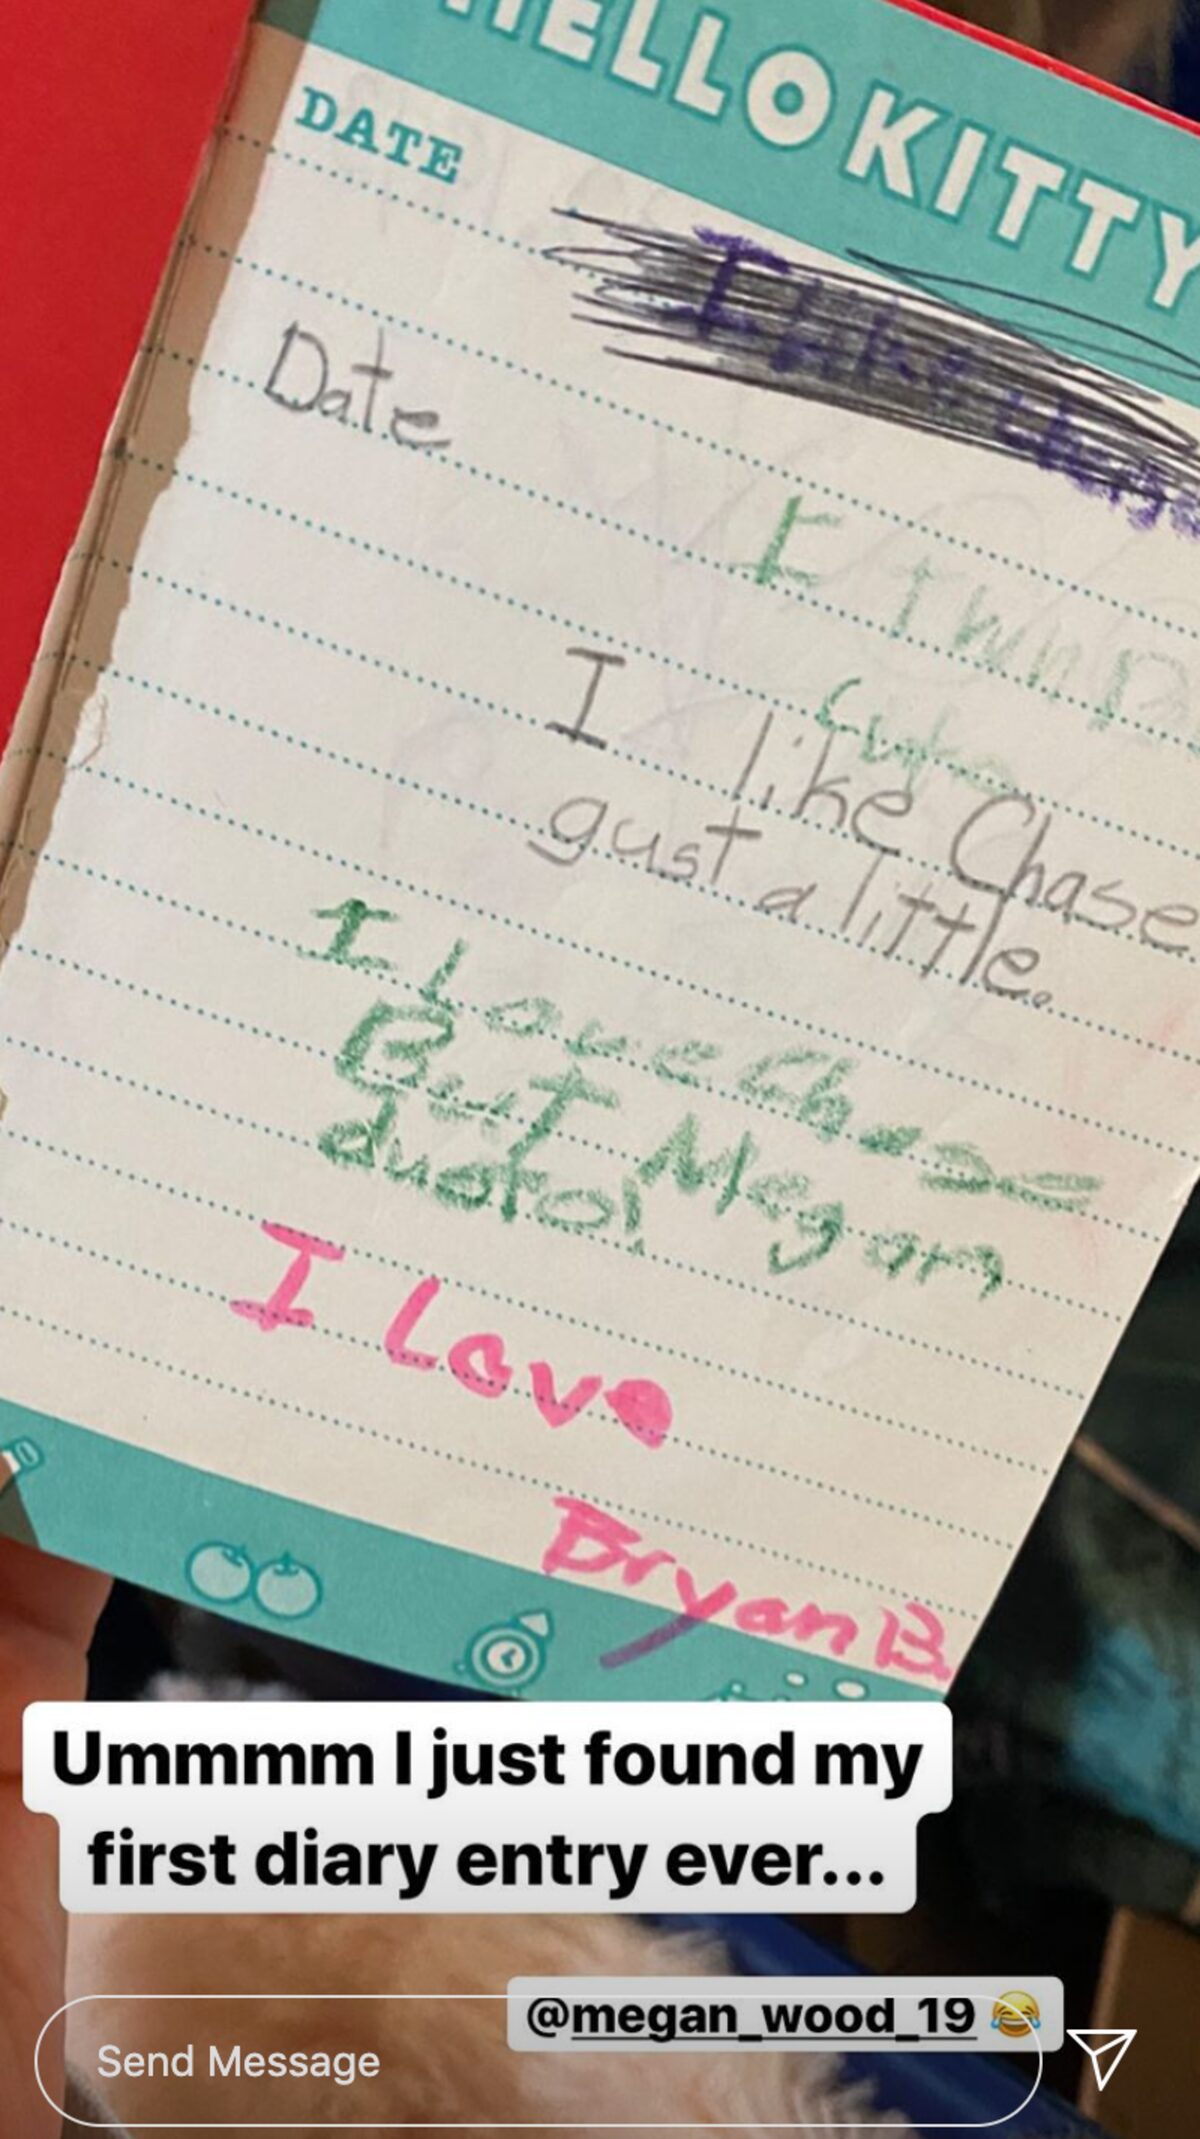 HELLO KITTY
DATE
I like
Date
I
I like Chase
gust a little.
I love Chase
But Megan
dusto!
I Love
Bryan B.
Ummmm I just found my
first diary entry ever...
@megan_wood_19 😂
Send Message